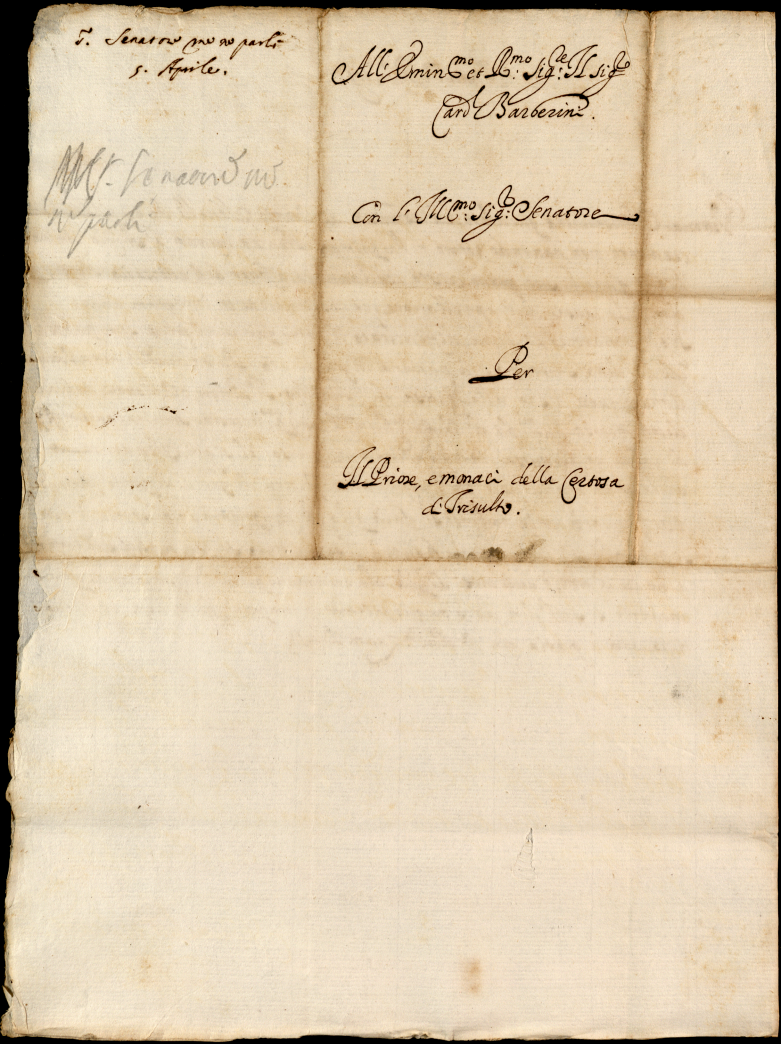 T. Senatore me ne parli
5. Aprile.
Sr. Senatore me
ne parli
All' Emin.mo et R.mo Sig.re Il Sig.r
Card.l Barberini.
Con l'Ill.mo Sig.r Senatore
Per
Il Priore, e monaci della Certosa
di Trisulto.